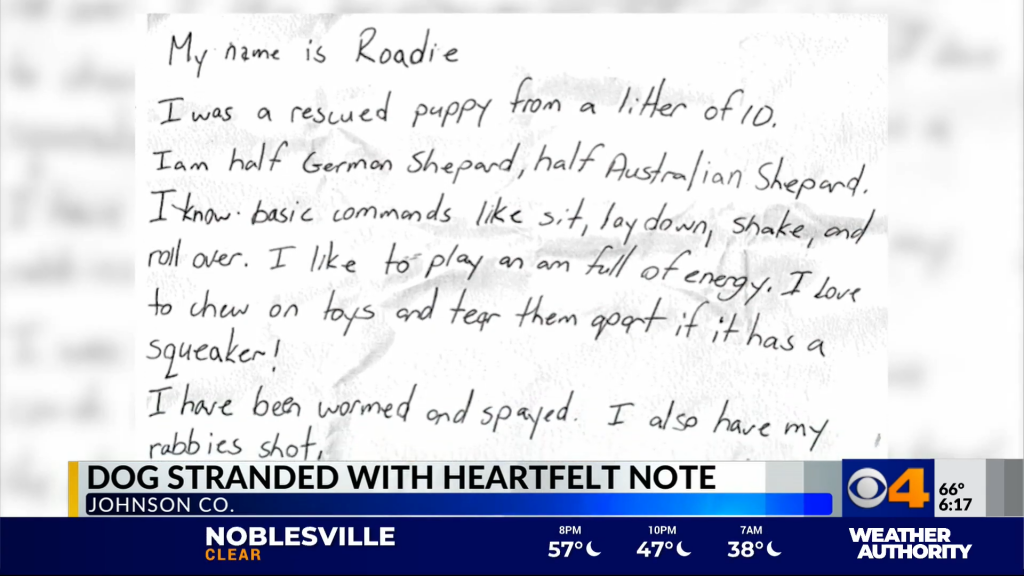 My name is Roadie
I was a rescued puppy from a litter of 10.
I am half German Shepard, half Australian Shepard.
I know basic commands like sit, lay down, shake, and
roll over. I like to play an am full of energy. I love
to chew on toys and tear them apart if it has a
squeaker!
I have been wormed and spayed. I also have my
rabbies shot.
DOG STRANDED WITH HEARTFELT NOTE
JOHNSON CO.
4
66°
6:17
NOBLESVILLE
CLEAR
8PM 10PM 7AM
57° 47° 38°
WEATHER
AUTHORITY